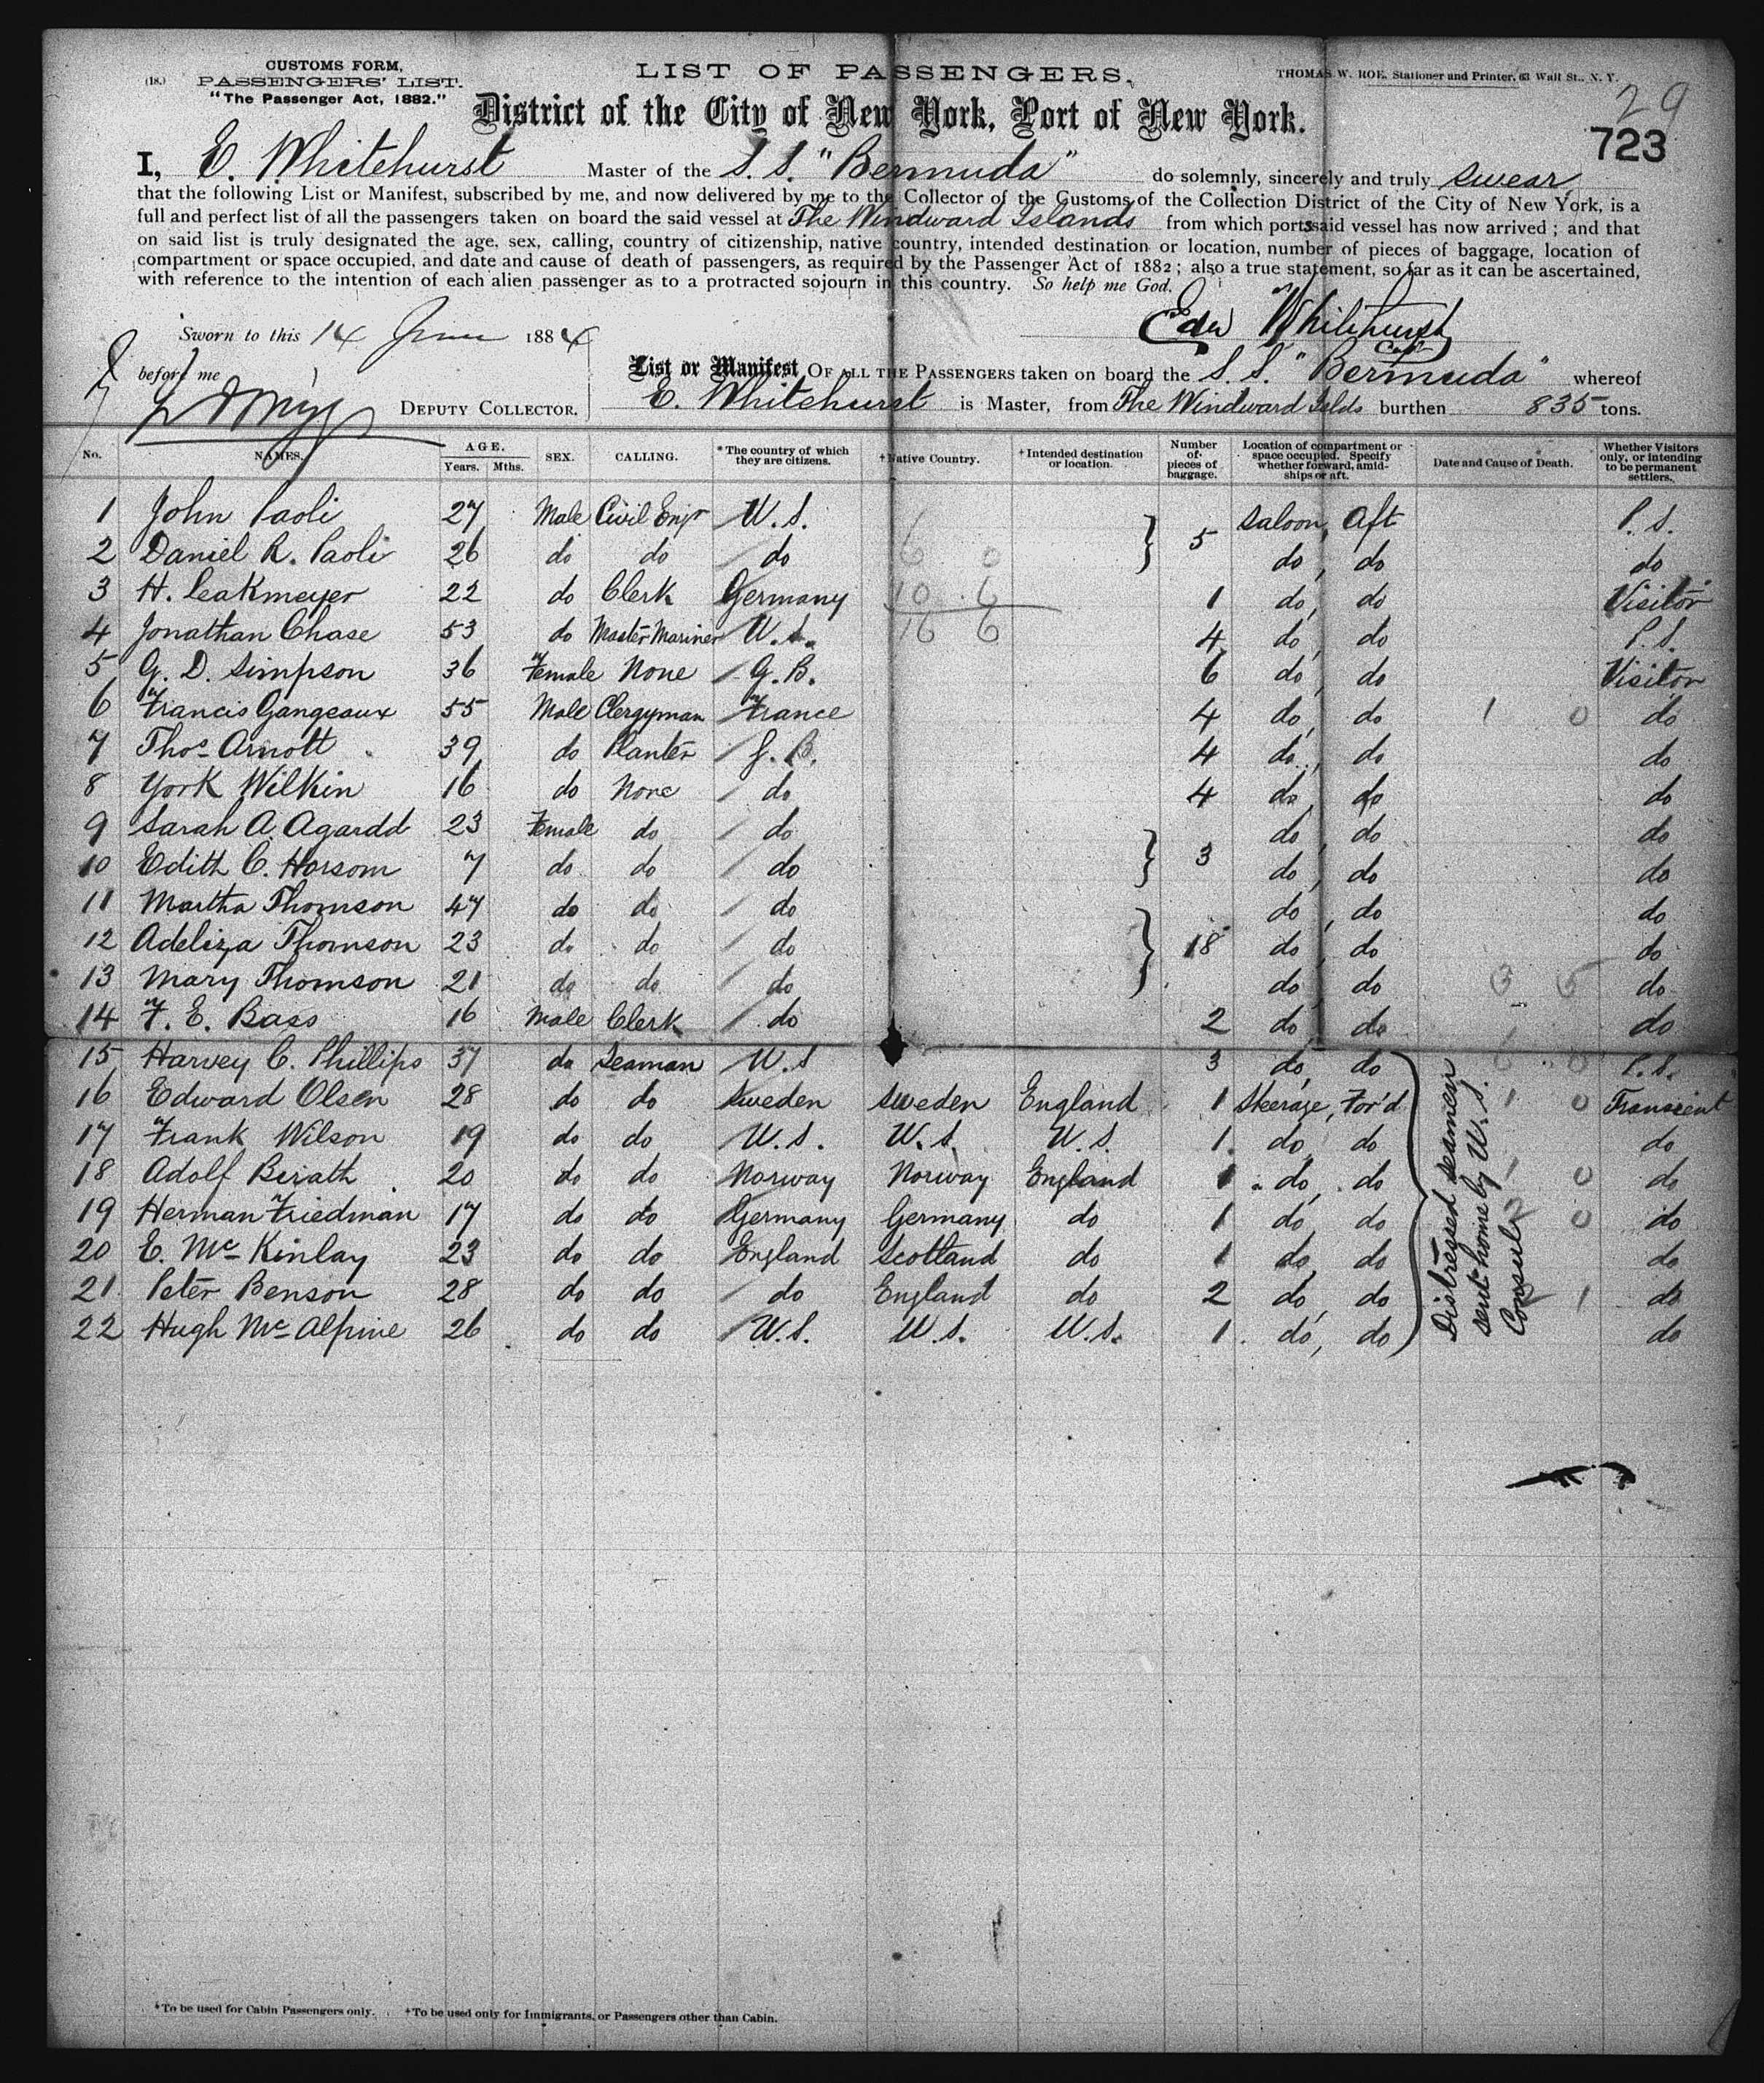 (18.) CUSTOMS FORM,
PASSENGERS' LIST.
"The Passenger Act, 1882."
LIST OF PASSENGERS,
THOMAS W. ROE, Stationer and Printer, 63 Wall St., N. Y.
29
District of the City of New York, Port of New York.
723
I, E. Whitehurst Master of the S.S. "Bermuda" do solemnly, sincerely and truly swear,
that the following List or Manifest, subscribed by me, and now delivered by me to the Collector of the Customs of the Collection District of the City of New York, is a
full and perfect list of all the passengers taken on board the said vessel at The Windward Islands from which ports said vessel has now arrived; and that
on said list is truly designated the age, sex, calling, country of citizenship, native country, intended destination or location, number of pieces of baggage, location of
compartment or space occupied, and date and cause of death of passengers, as required by the Passenger Act of 1882; also a true statement, so far as it can be ascertained,
with reference to the intention of each alien passenger as to a protracted sojourn in this country. So help me God.
Edw Whitehurst
Capt
Sworn to this 14 June 1884
before me
DEPUTY COLLECTOR.
List or Manifest OF ALL THE PASSENGERS taken on board the S.S. "Bermuda" whereof
E. Whitehurst is Master, from The Windward Islds burthen 835 tons.
No. NAMES. AGE. Years. Mths. SEX. CALLING. *The country of which they are citizens. †Native Country. †Intended destination or location. Number of pieces of baggage. Location of compartment or space occupied. Specify whether forward, amidships or aft. Date and Cause of Death. Whether Visitors only, or intending to be permanent settlers.
1 John Paoli 27 Male Civil Engr U.S. Saloon, Aft P.S.
2 Daniel R. Paoli 26 do do do 6 0 } 5 do, do do
3 H. Leakmeyer 22 do Clerk Germany 10 6 1 do, do Visitor
4 Jonathan Chase 53 do Master Mariner U.S. 16 6 4 do, do P.S.
5 G. D. Simpson 36 Female None G.B. 6 do, do Visitor
6 Francis Gangeaux 55 Male Clergyman France 4 do, do 1 0 do
7 Thos Arnott 39 do Planter G.B. 4 do, do do
8 York Wilkin 16 do None do 4 do, do do
9 Sarah A. Agardd 23 Female do do do, do do
10 Edith C. Horsom 7 do do do } 3 do, do do
11 Martha Thomson 47 do do do do, do do
12 Adeliza Thomson 23 do do do } 18 do, do do
13 Mary Thomson 21 do do do do do 3 5 do
14 F. E. Bass 16 Male Clerk do 2 do do do
15 Harvey C. Phillips 37 do Seaman U.S 3 do, do 6 0 P.S.
16 Edward Olsen 28 do do Sweden Sweden England 1 Steerage, For'd 1 0 Transient
17 Frank Wilson 19 do do U.S. U.S. U.S. 1 do, do do
18 Adolf Berath 20 do do Norway Norway England 1 do, do 1 0 do
19 Herman Friedman 17 do do Germany Germany do 1 do, do 2 0 do
20 E. McKinlay 23 do do England Scotland do 1 do, do do
21 Peter Benson 28 do do do England do 2 do, do 2 1 do
22 Hugh McAlpine 26 do do U.S. U.S. U.S. 1 do, do do
Distressed seamen
sent home by U.S.
Consuls
*To be used for Cabin Passengers only. †To be used only for Immigrants, or Passengers other than Cabin.